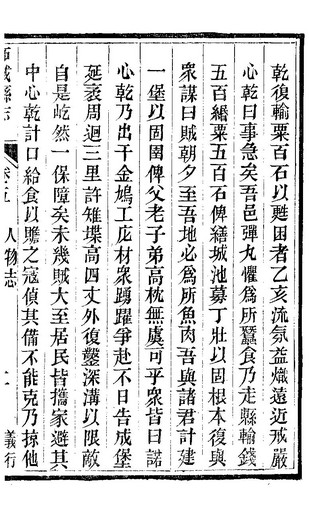 乾復輸粟百石以甦困者乙亥流氛益熾遠近戒嚴
心乾曰事急矣吾邑彈丸懼爲所蠶食乃走縣輸錢
五百緡粟五百石俾繕城池募丁壯以固根本復與
衆謀曰賊朝夕至吾地必爲所魚肉吾與諸君計建
一堡以固圉俾父老子弟高枕無虞可乎衆皆曰諾
心乾乃出千金鳩工庀材衆踴躍爭赴不日告成堡
延袤周迴三里許雉堞高四丈外復鑿深溝以限敵
自是屹然一保障矣未幾賊大至居民皆攜家避其
中心乾計口給食以贍之寇偵其備不能克乃掠他
城縣志 人物志 義行